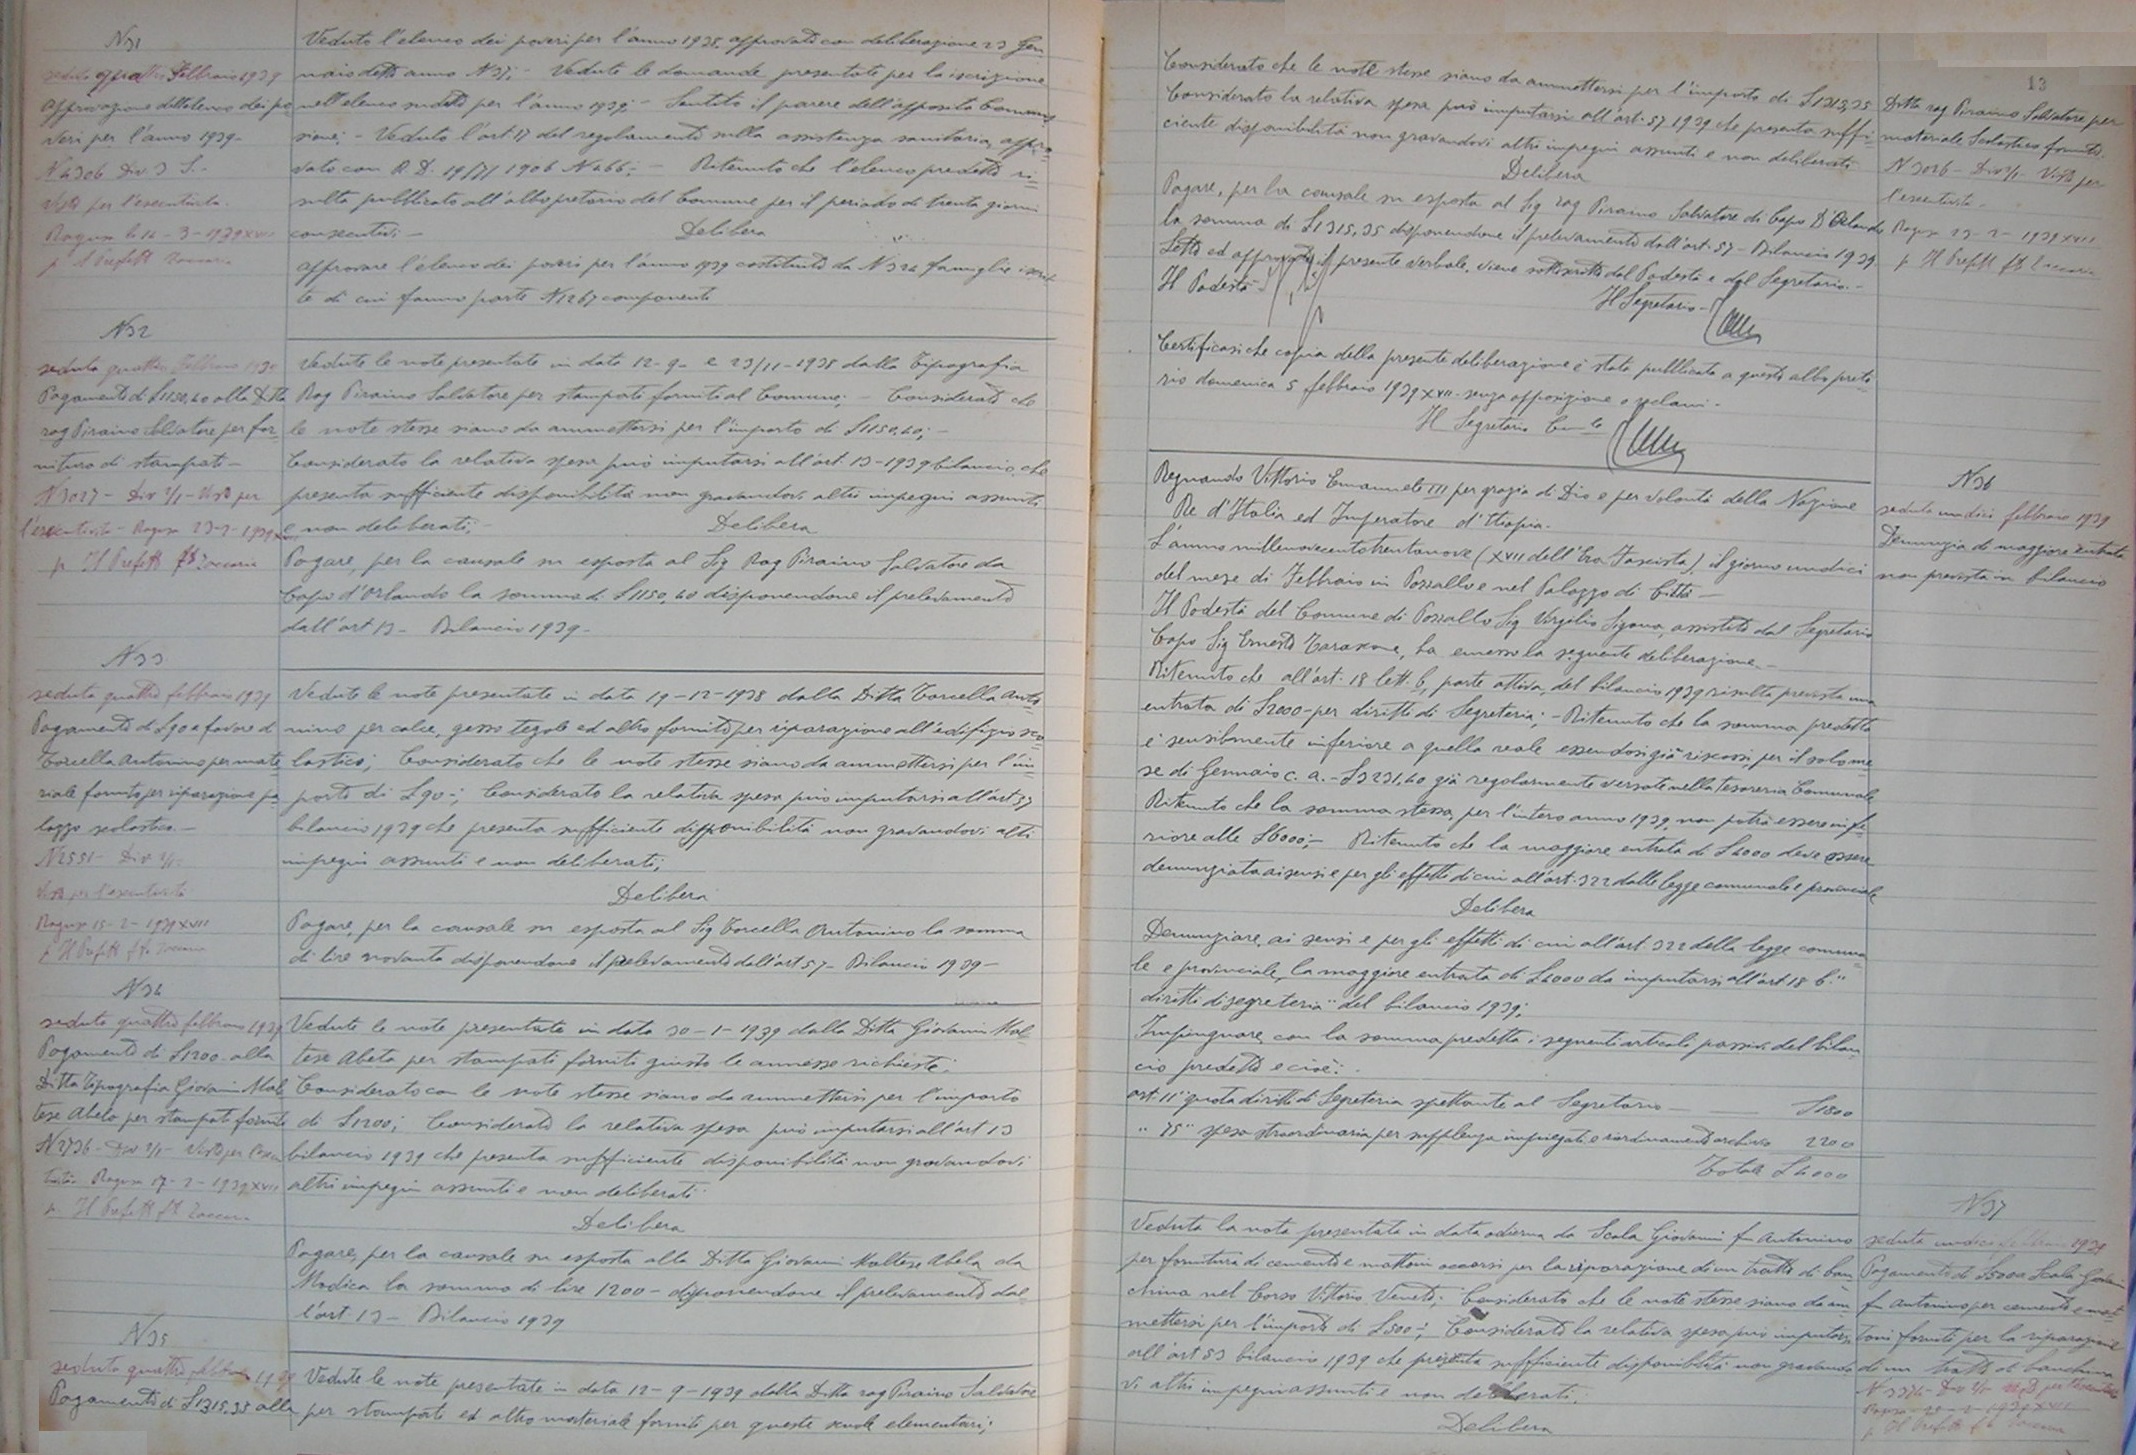 N 31
seduta quattro Febbraio 1939
approvazione dell'elenco dei po
veri per l'anno 1939-
N 4306 Div 3 S.-
Visto per l'esecutività.
Ragusa li 14 - 3 - 1939 XVII
p. Il Prefetto Zoccaria
Veduto l'elenco dei poveri per l'anno 1938, approvato con deliberazione 23 Gen
naio detto anno N 37; - Vedute le domande presentate per la iscrizione
nell'elenco sudetto per l'anno 1939; - Sentito il parere dell'apposita Commis
sione; - Veduto l'art 17 del regolamento sulla assistenza sanitaria, appro-
vato con R. D. 19/VII 1906 N 466; - Ritenuto che l'elenco predetto ri-
sulta pubblicato all'albo pretorio del Comune per il periodo di trenta giorni
consecutivi -
Delibera
approvare l'elenco dei poveri per l'anno 1939 costituito da N 324 famiglie iscrit
te di cui fanno parte N 1267 componenti
N 32
seduta quattro Febbraio 1939
Pagamento di £ 1150,40 alla Ditta
rag Piraino Salvatore per for-
nitura di stampati -
N 3027 - Div 2/1 - Visto per
l'esecutività - Ragusa 23-2-1939
p. Il Prefetto ff Zoccaria
Vedute le note presentate in data 12-9- e 23/11-1938 dalla Tipografia
Rag Piraino Salvatore per stampati forniti al Comune; - Considerato che
le note stesse siano da ammettersi per l'importo di £ 1150,40; -
Considerato la relativa spesa può imputarsi all'art 13 - 1939 bilancio, che
presenta sufficiente disponibilità non gravandovi altri impegni assunti
e non deliberati; -
Delibera
Pagare, per la causale su esposta al Sig Rag Piraino Salvatore da
Capo d'Orlando la somma di £ 1150,40 disponendone il prelevamento
dall'art 13 - Bilancio 1939 -
N 33
seduta quattro febbraio 1939
Pagamento di £ 90 a favore d
Torcella Antonino per mate
riale fornito per riparazione pa
lazzo scolastico. -
N 2551 - Div 2/1
Visto per l'esecutività
Ragusa 15 - 2 - 1939 XVII
p Il Prefetto ff Zoccaria
Vedute le note presentate in data 19 - 12 - 1938 dalla Ditta Torcella Anto-
nino per calce, gesso tegole ed altro fornito per riparazione all'edifizio sco-
lastico; Considerato che le note stesse siano da ammettersi per l'im-
porto di £ 90 -; Considerato la relativa spesa può imputarsi all'art 57
bilancio 1939 che presenta sufficiente disponibilità non gravandovi altri
impegni assunti e non deliberati;
Delibera
Pagare, per la causale su esposta al Sig Torcella Antonino la somma
di lire novanta disponendone il prelevamento dall'art 57 - Bilancio 1939 -
N 34
seduta quattro febbraio 1939
Pagamento di £ 1200 - alla
Ditta Tipografia Giovanni Mal
tese Abela per stampati forniti
N 2736 - Div 2/1 - Visto per l'esecu
tività Ragusa 17 - 2 - 1939 XVII
p. Il Prefetto ff Zoccaria
Vedute le note presentate in data 30 - 1 - 1939 dalla Ditta Giovanni Mal-
tese Abela per stampati forniti giusto le annesse richieste;
Considerato con le note stesse siano da ammettersi per l'importo
di £ 1200; Considerato la relativa spesa può imputarsi all'art 13
bilancio 1939 che presenta sufficiente disponibilità non gravandovi
altri impegni assunti e non deliberati
Delibera
Pagare, per la causale su esposta alla Ditta Giovanni Maltese Abela da
Modica la somma di lire 1200 - disponendone il prelevamento dal-
l'art 13 - Bilancio 1939
N 35
seduta quattro febbraio 1939
Pagamento di £ 1315,35 alla
Vedute le note presentate in data 12 - 9 - 1939 dalla Ditta rag Piraino Salvatore
per stampati ed altro materiale forniti per queste scuole elementari;
13
Considerato che le note stesse siano da ammettersi per l'importo di £ 1313,35
Considerato la relativa spesa può imputarsi all'art. 57 1939 che presenta suffi-
ciente disponibilità non gravandovi altri impegni assunti e non deliberati
Delibera
Pagare, per la causale su esposta al Sig rag Piraino Salvatore di Capo D'Orlando
la somma di £ 1315,35 disponendone il prelevamento dall'art. 57 - Bilancio 1939
Letto ed approvato il presente verbale, viene sottoscritto dal Podestà e dal Segretario. -
Il Podestà -
Il Segretario -
Ditta rag Piraino Salvatore per
materiale Scolastico fornito.
N 3026 - Div 2/1 - Visto per
l'esecutività -
Ragusa 23 - 2 - 1939 XVII
p Il Prefetto ff Zoccaria
Certificasi che copia della presente deliberazione è stata pubblicata a questo albo preto
rio domenica 5 febbraio 1939 XVII - senza opposizione o reclami -
Il Segretario Com.le
Regnando Vittorio Emanuele III per grazia di Dio e per volontà della Nazione
Re d'Italia ed Imperatore d'Etiopia.
L'anno millenovecentotrentanove (XVII dell'Era Fascista), il giorno undici
del mese di Febbraio in Pozzallo e nel Palazzo di Città -
Il Podestà del Comune di Pozzallo Sig Virgilio Sigona, assistito dal Segretario
Capo Sig Ernesto Tarascone, ha emesso la seguente deliberazione. -
Ritenuto che all'art. 18 lett. b, parte attiva, del bilancio 1939 risulta prevista una
entrata di £ 2000 - per diritti di Segreteria; - Ritenuto che la somma predetta
è sensibilmente inferiore a quella reale essendosi già riscossi, per il solo me
se di Gennaio c. a. - £ 3231,40 già regolarmente versate nella Tesoreria Comunale
Ritenuto che la somma stessa, per l'intero anno 1939, non potrà essere infe-
riore alle £ 6000; - Ritenuto che la maggiore entrata di £ 4000 deve essere
denunziata ai sensi e per gli effetti di cui all'art. 322 della legge comunale e provinciale
Delibera
Denunziare, ai sensi e per gli effetti di cui all'art. 322 della legge comuna-
le e provinciale, la maggiore entrata di £ 4000 da imputarsi all'art 18 b "
diritti di segreteria" del bilancio 1939;
Impinguare, con la somma predetta i seguenti articoli passivi del bilan
cio predetto e cioè:
art. 11 " quota diritti di Segreteria spettante al Segretario - £ 1800
" 75 " spesa straordinaria per supplenza impiegati e riordinamento archivio 2200
Totale £ 4000
N 36
seduta undici febbraio 1939
Denunzia di maggiore entrata
non prevista in bilancio
Veduta la nota presentata in data odierna da Scala Giovanni fu Antonino
per fornitura di cemento e mattoni occorsi per la riparazione di un tratto di ban
china nel Corso Vittorio Veneto; Considerato che le note stesse siano da am
mettersi per l'importo di £ 500 -; Considerato la relativa spesa può imputarsi
all'art 53 bilancio 1939 che presenta sufficiente disponibilità non gravando
vi altri impegni assunti e non deliberati;
Delibera
N 37
seduta undici febbraio 1939
Pagamento di £ 500 a Scala Giovanni
fu Antonino per cemento e mat
toni forniti per la riparazione
di un tratto di banchina
Il Prefetto ff Zoccaria